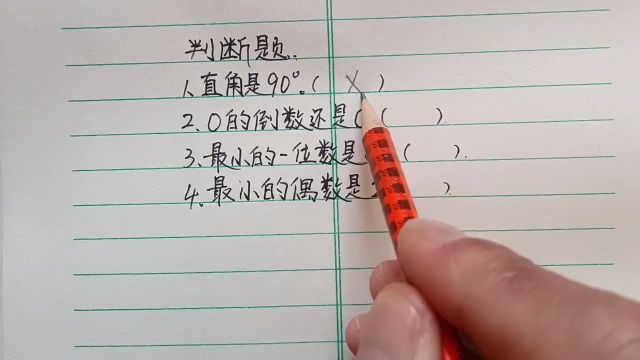 判断题:
1、直角是90°。( ✗ )
2、0的倒数还是 ( ).
3、最小的一位数是 ( ).
4、最小的偶数是 )